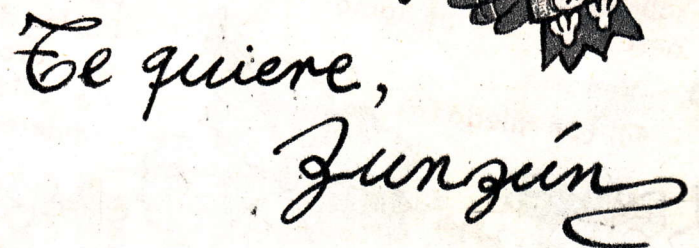 Te quiere,
Zunzún